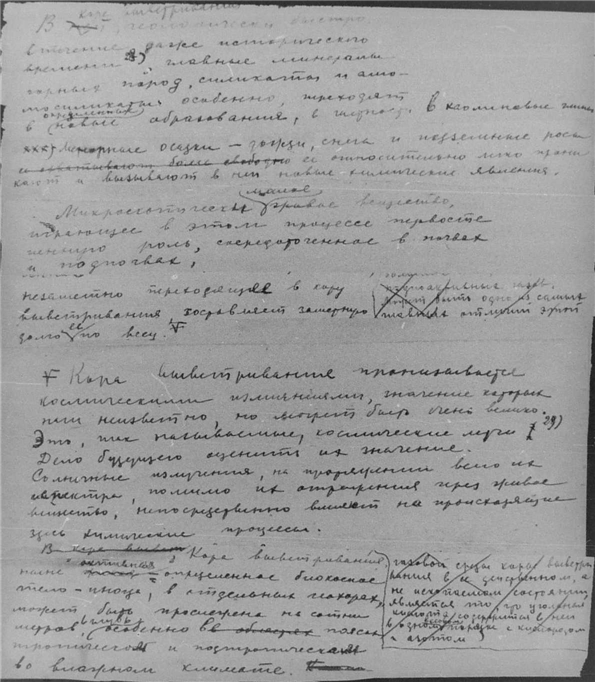 В коре выветривания
, геологически быстро
в течение даже исторического
времени, главные минералы
горных пород, силикаты и алю-
мосиликаты особенно, переходят
в определенные новые образования, в каолиновые глины
ххх) Метеорные осадки – дожди, снега и подземные росы
ее охватывают более свободно ее относительно легко прони
кают и вызывают в ней новые химические явления.
Микроскопически малое живое вещество,
играющее в этом процессе первосте
пенную роль, сосредоточенное в почвах
и подпочвах,
незаметно переходящее в кору
выветривания составляет заметную
долю ее по весу. V
может быть одно из самых
главных отличий этой
V Кора выветривания пронизывается
космическими излучениями, значение которых
нам неизвестно, но может быть очень велико.
Это, так называемые, космические лучи 29)
Дело будущего оценить их значение.
Солнечные излучения, на протяжении всего их
спектра, помимо их отражения через живое
вещество, непосредственно влияют на происходящие
здесь химические процессы.
В коре выветр Кора выветривания,
ныне активная – определенное биокосное
тело – иногда, в отдельных геохорах,
может быть прослежена на сотни
метров вглубь, особенно в областях поясах
тропических и подтропических
во влажном климате.
газовой среды коры выветри
вания в ее
не ископаемом состоянии
является то, что угольная
кислота содержится в ней
в одном порядке с кислородом
и азотом